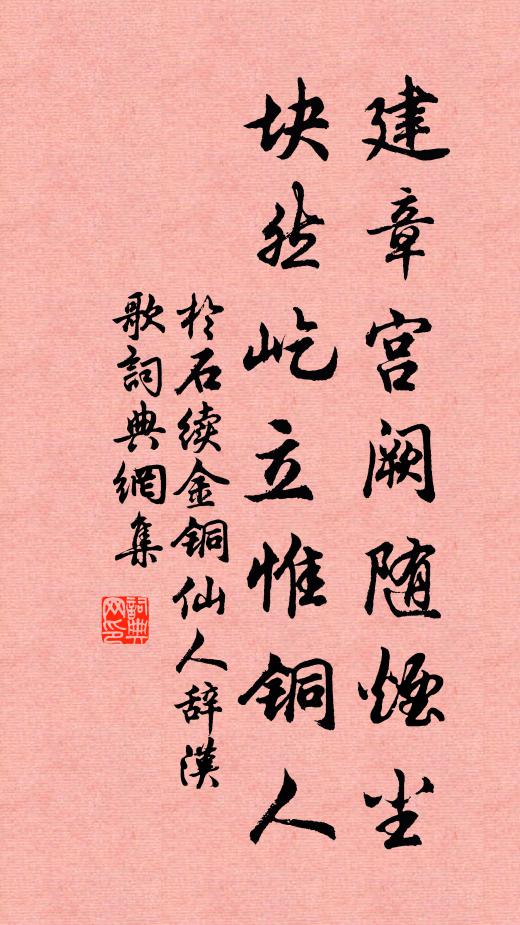 建章宫阙随烟尘
块然屹立惟铜人
於石续金铜仙人辞汉
歌词典網集
詞典網印